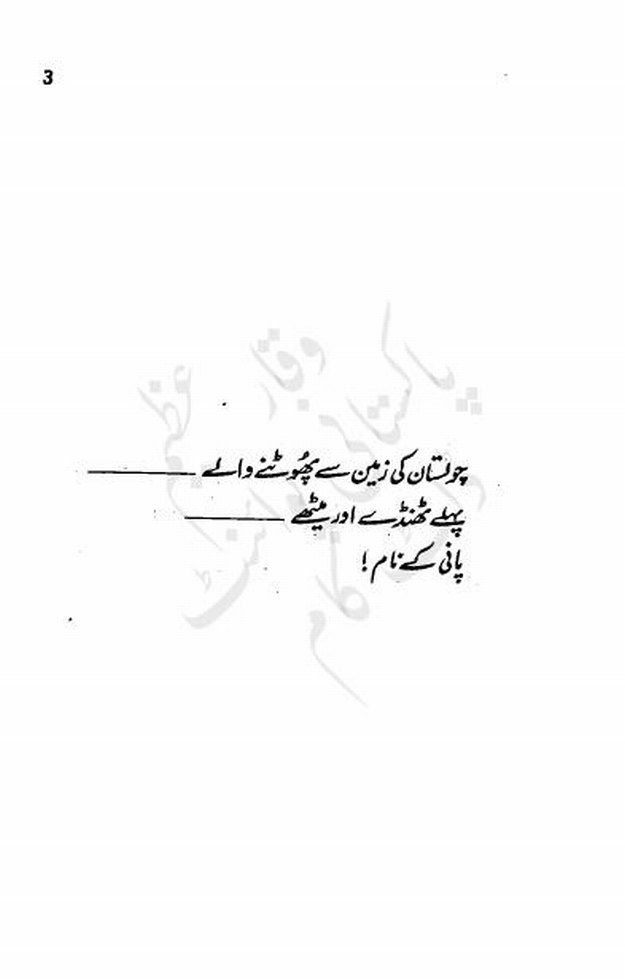 3
چولستان کی زمین سے پھُوٹنے والے ————
پہلے ٹھنڈے اور میٹھے ————
پانی کے نام!
وقار عظیم
پاکستانی پوائنٹ
ڈاٹ کام